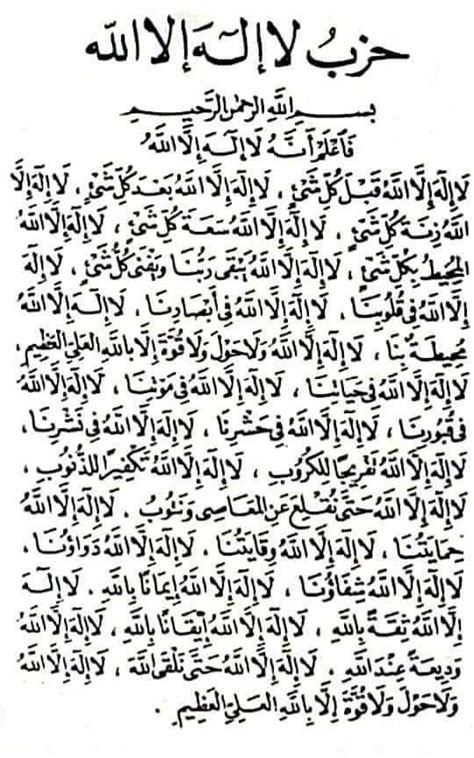 حزبُ لا إلٰهَ إلا الله
بِسْمِ اللهِ الرَّحْمٰنِ الرَّحِيمِ
فَاعْلَمْ أَنَّهُ لَا إِلٰهَ إِلَّا اللهُ
لَا إِلٰهَ إِلَّا اللهُ قَبْلَ كُلِّ شَيْءٍ ، لَا إِلٰهَ إِلَّا اللهُ بَعْدَ كُلِّ شَيْءٍ ، لَا إِلٰهَ إِلَّا
اللهُ زِنَةَ كُلِّ شَيْءٍ ، لَا إِلٰهَ إِلَّا اللهُ سَعَةَ كُلِّ شَيْءٍ ، لَا إِلٰهَ إِلَّا اللهُ
المُحِيطُ بِكُلِّ شَيْءٍ ، لَا إِلٰهَ إِلَّا اللهُ يَبْقَى رَبُّنَا وَيَفْنَى كُلُّ شَيْءٍ ، لَا إِلٰهَ
إِلَّا اللهُ فِي قُلُوبِنَا ، لَا إِلٰهَ إِلَّا اللهُ فِي أَبْصَارِنَا ، لَا إِلٰهَ إِلَّا اللهُ
مُحِيطَةٌ بِنَا ، لَا إِلٰهَ إِلَّا اللهُ وَلَا حَوْلَ وَلَا قُوَّةَ إِلَّا بِاللهِ العَلِيِّ العَظِيمِ ،
لَا إِلٰهَ إِلَّا اللهُ فِي حَيَاتِنَا ، لَا إِلٰهَ إِلَّا اللهُ فِي مَوْتِنَا ، لَا إِلٰهَ إِلَّا اللهُ
فِي قُبُورِنَا ، لَا إِلٰهَ إِلَّا اللهُ فِي حَشْرِنَا ، لَا إِلٰهَ إِلَّا اللهُ فِي نَشْرِنَا ،
لَا إِلٰهَ إِلَّا اللهُ تَفْرِيجًا لِلْكُرُوبِ ، لَا إِلٰهَ إِلَّا اللهُ تَكْفِيرًا لِلذُّنُوبِ ،
لَا إِلٰهَ إِلَّا اللهُ حَتَّى نُقْلِعَ عَنِ المَعَاصِي وَنَتُوبُ . لَا إِلٰهَ إِلَّا اللهُ
حِمَايَتُنَا ، لَا إِلٰهَ إِلَّا اللهُ وِقَايَتُنَا ، لَا إِلٰهَ إِلَّا اللهُ دَوَاؤُنَا ،
لَا إِلٰهَ إِلَّا اللهُ شِفَاؤُنَا ، لَا إِلٰهَ إِلَّا اللهُ إِيمَانًا بِاللهِ . لَا إِلٰهَ
إِلَّا اللهُ ثِقَةً بِاللهِ ، لَا إِلٰهَ إِلَّا اللهُ إِيْقَانًا بِاللهِ ، لَا إِلٰهَ إِلَّا اللهُ
وَدِيعَةً عِنْدَ اللهِ . لَا إِلٰهَ إِلَّا اللهُ حَتَّى نَلْقَى اللهَ ، لَا إِلٰهَ إِلَّا اللهُ
وَلَا حَوْلَ وَلَا قُوَّةَ إِلَّا بِاللهِ العَلِيِّ العَظِيمِ .